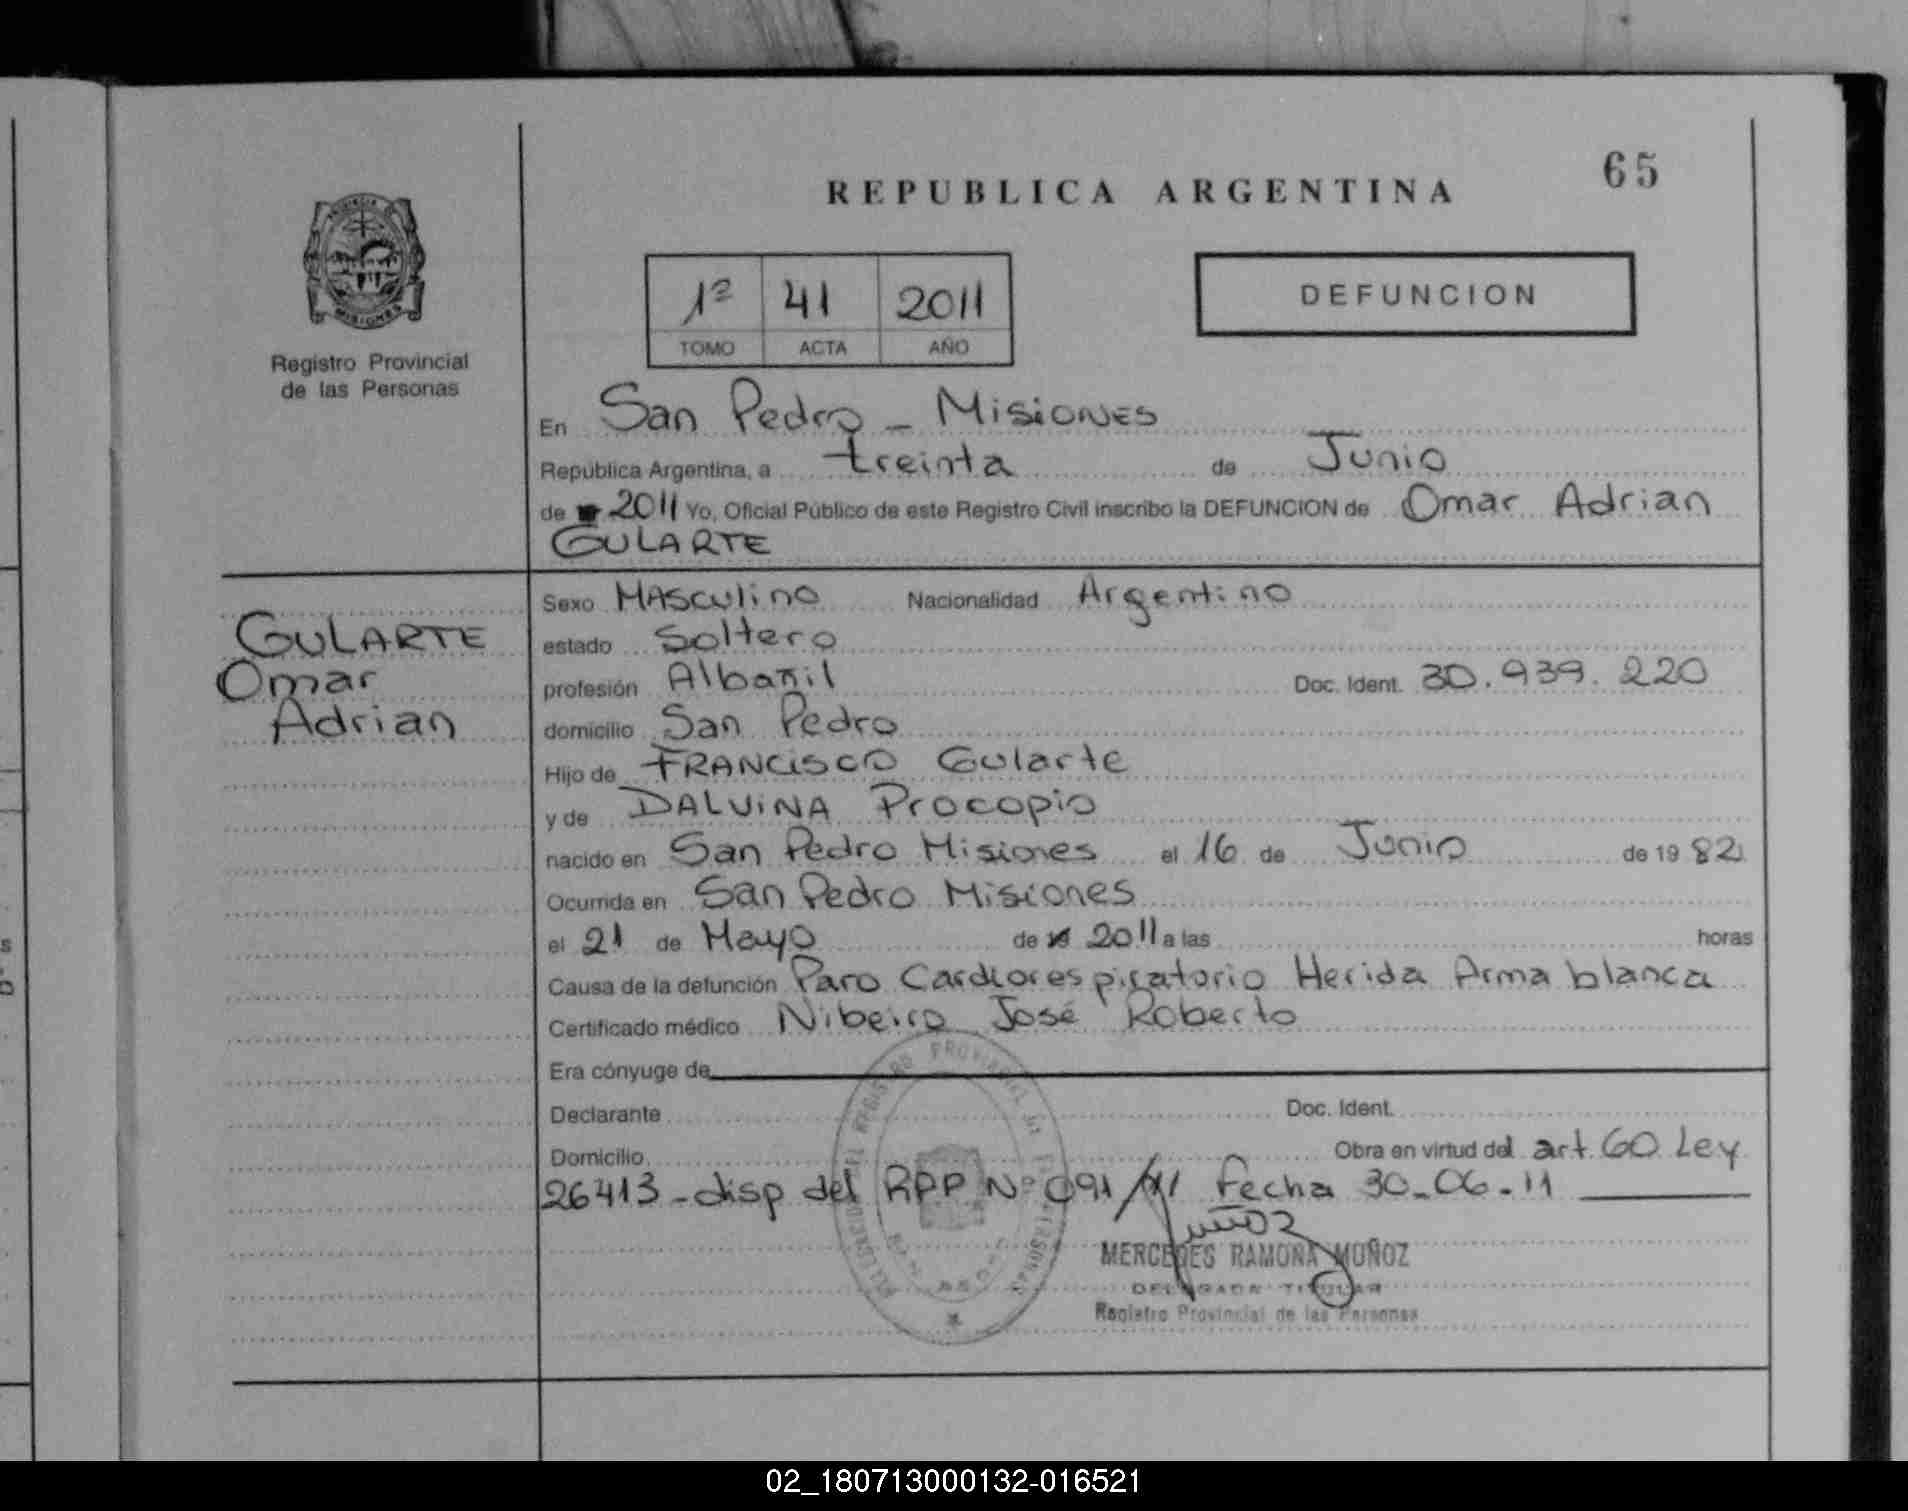 REPUBLICA ARGENTINA
65
PROVINCIA
MISIONES
Registro Provincial
de las Personas
1º 41 2011
TOMO ACTA AÑO
DEFUNCION
En San Pedro - Misiones
República Argentina, a treinta de Junio
de 2011 Yo, Oficial Público de este Registro Civil inscribo la DEFUNCION de Omar Adrian
GULARTE
GULARTE
Omar
Adrian
Sexo Masculino Nacionalidad Argentino
estado Soltero
profesión Albañil Doc. Ident. 30.939.220
domicilio San Pedro
Hijo de FRANCISCO Gularte
y de DALVINA Procopio
nacido en San Pedro Misiones el 16 de Junio de 19 82
Ocurrida en San Pedro Misiones
el 21 de Mayo de 19 2011 a las horas
Causa de la defunción Paro Cardiorespiratorio Herida Arma blanca
Certificado médico Nibeiro José Roberto
Era cónyuge de
Declarante Doc. Ident.
Domicilio Obra en virtud del art. 60 Ley
26413 - disp del RPP Nº 091/11 Fecha 30-06-11
Muñoz
MERCEDES RAMONA MUÑOZ
DELEGADA TITULAR
Registro Provincial de las Personas
02_180713000132-016521